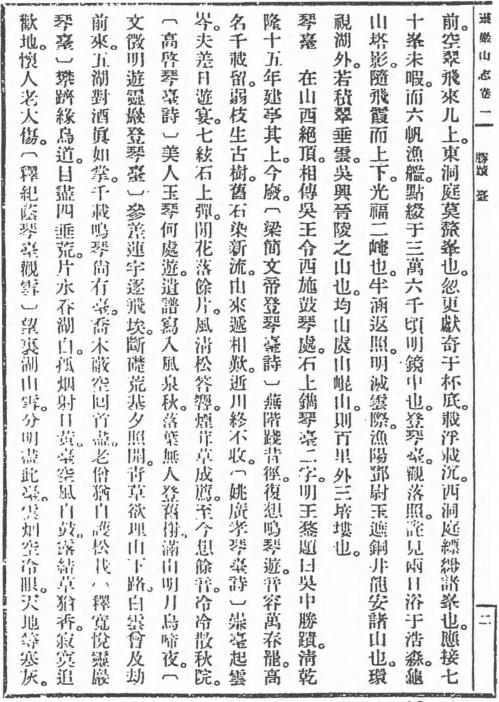 靈巖山志卷一 勝蹟 臺 二
前。空翠飛來几上。東洞庭莫釐峯也。忽更獻奇于杯底。載浮載沉。西洞庭縹緲諸峯也。應接七
十峯未暇。而六帆漁艦。點綴于三萬六千頃明鏡中也。登琴臺。觀落照。詫見兩日浴于浩淼。龜
山塔影。隨飛霞而上下。光福二崦也。半涵返照。明滅雲際。漁陽鄧尉玉遮銅井龍安諸山也。環
視湖外。若積翠垂雲。吳興晉陵之山也。均山處山崐山。則百里外三培塿也。
琴臺 在山西絕頂。相傳吳王令西施鼓琴處。石上鐫琴臺二字。明王鏊題曰吳中勝蹟。清乾
隆十五年建亭其上。今廢。〔梁簡文帝登琴臺詩〕蕪階踐昔徑。復想鳴琴遊。音容萬春罷。高
名千載留。弱枝生古樹。舊石染新流。由來遞相歎。逝川終不收。〔姚廣孝琴臺詩〕崇臺起雲
岑。夫差日遊宴。七絃石上彈。閒花落餘片。風清松容響。煙茸草成薦。至今想餘音。泠泠散秋院。
〔高啓琴臺詩〕美人玉琴何處遊。遺譜寫入風泉秋。落葉無人登舊榭。滿山明月烏啼夜。〔
文徵明遊靈巖登琴臺〕參差蓮宇逐飛埃。斷礎荒基夕照開。青草欲埋山下路。白雲曾及劫
前來。五湖對酒眞如掌。千載鳴琴尙有臺。喬木蔽空回首盡。老僧猶自護松栽。〔釋寬悅靈巖
琴臺〕攀躋緣鳥道。目盡四垂荒。片水吞湖白。孤烟射日黃。臺空風自鼓。露結草猶香。寂寞追
歡地。懷人老大傷。〔釋紀蔭琴臺觀雪〕望裏湖山雪。分明盡此臺。雲烟空冷眼。天地等寒灰。